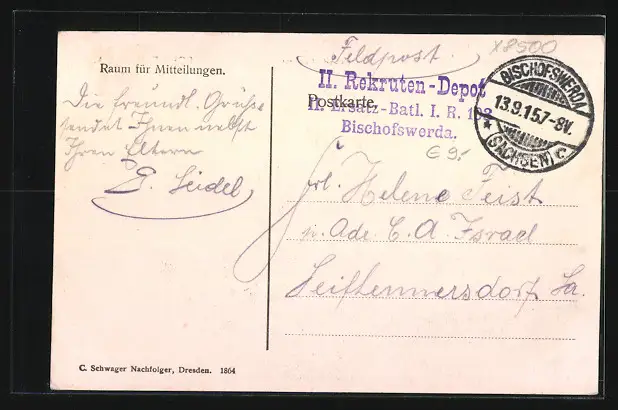 x8500
Feldpost.
Raum für Mitteilungen.
II. Rekruten-Depot
Postkarte.
II. Ersatz-Batl. I. R. 103
Bischofswerda.
BISCHOFSWERDA
13.9.15.7-8V.
* (SACHSEN) C *
€ 9,-
Die freundl. Grüße
sendet Ihnen nebst
Ihren Eltern
E. Seidel
Frl. Helene Feist
p. Adr. C. A. Israel
Seifhennersdorf Sa.
C. Schwager Nachfolger, Dresden. 1864